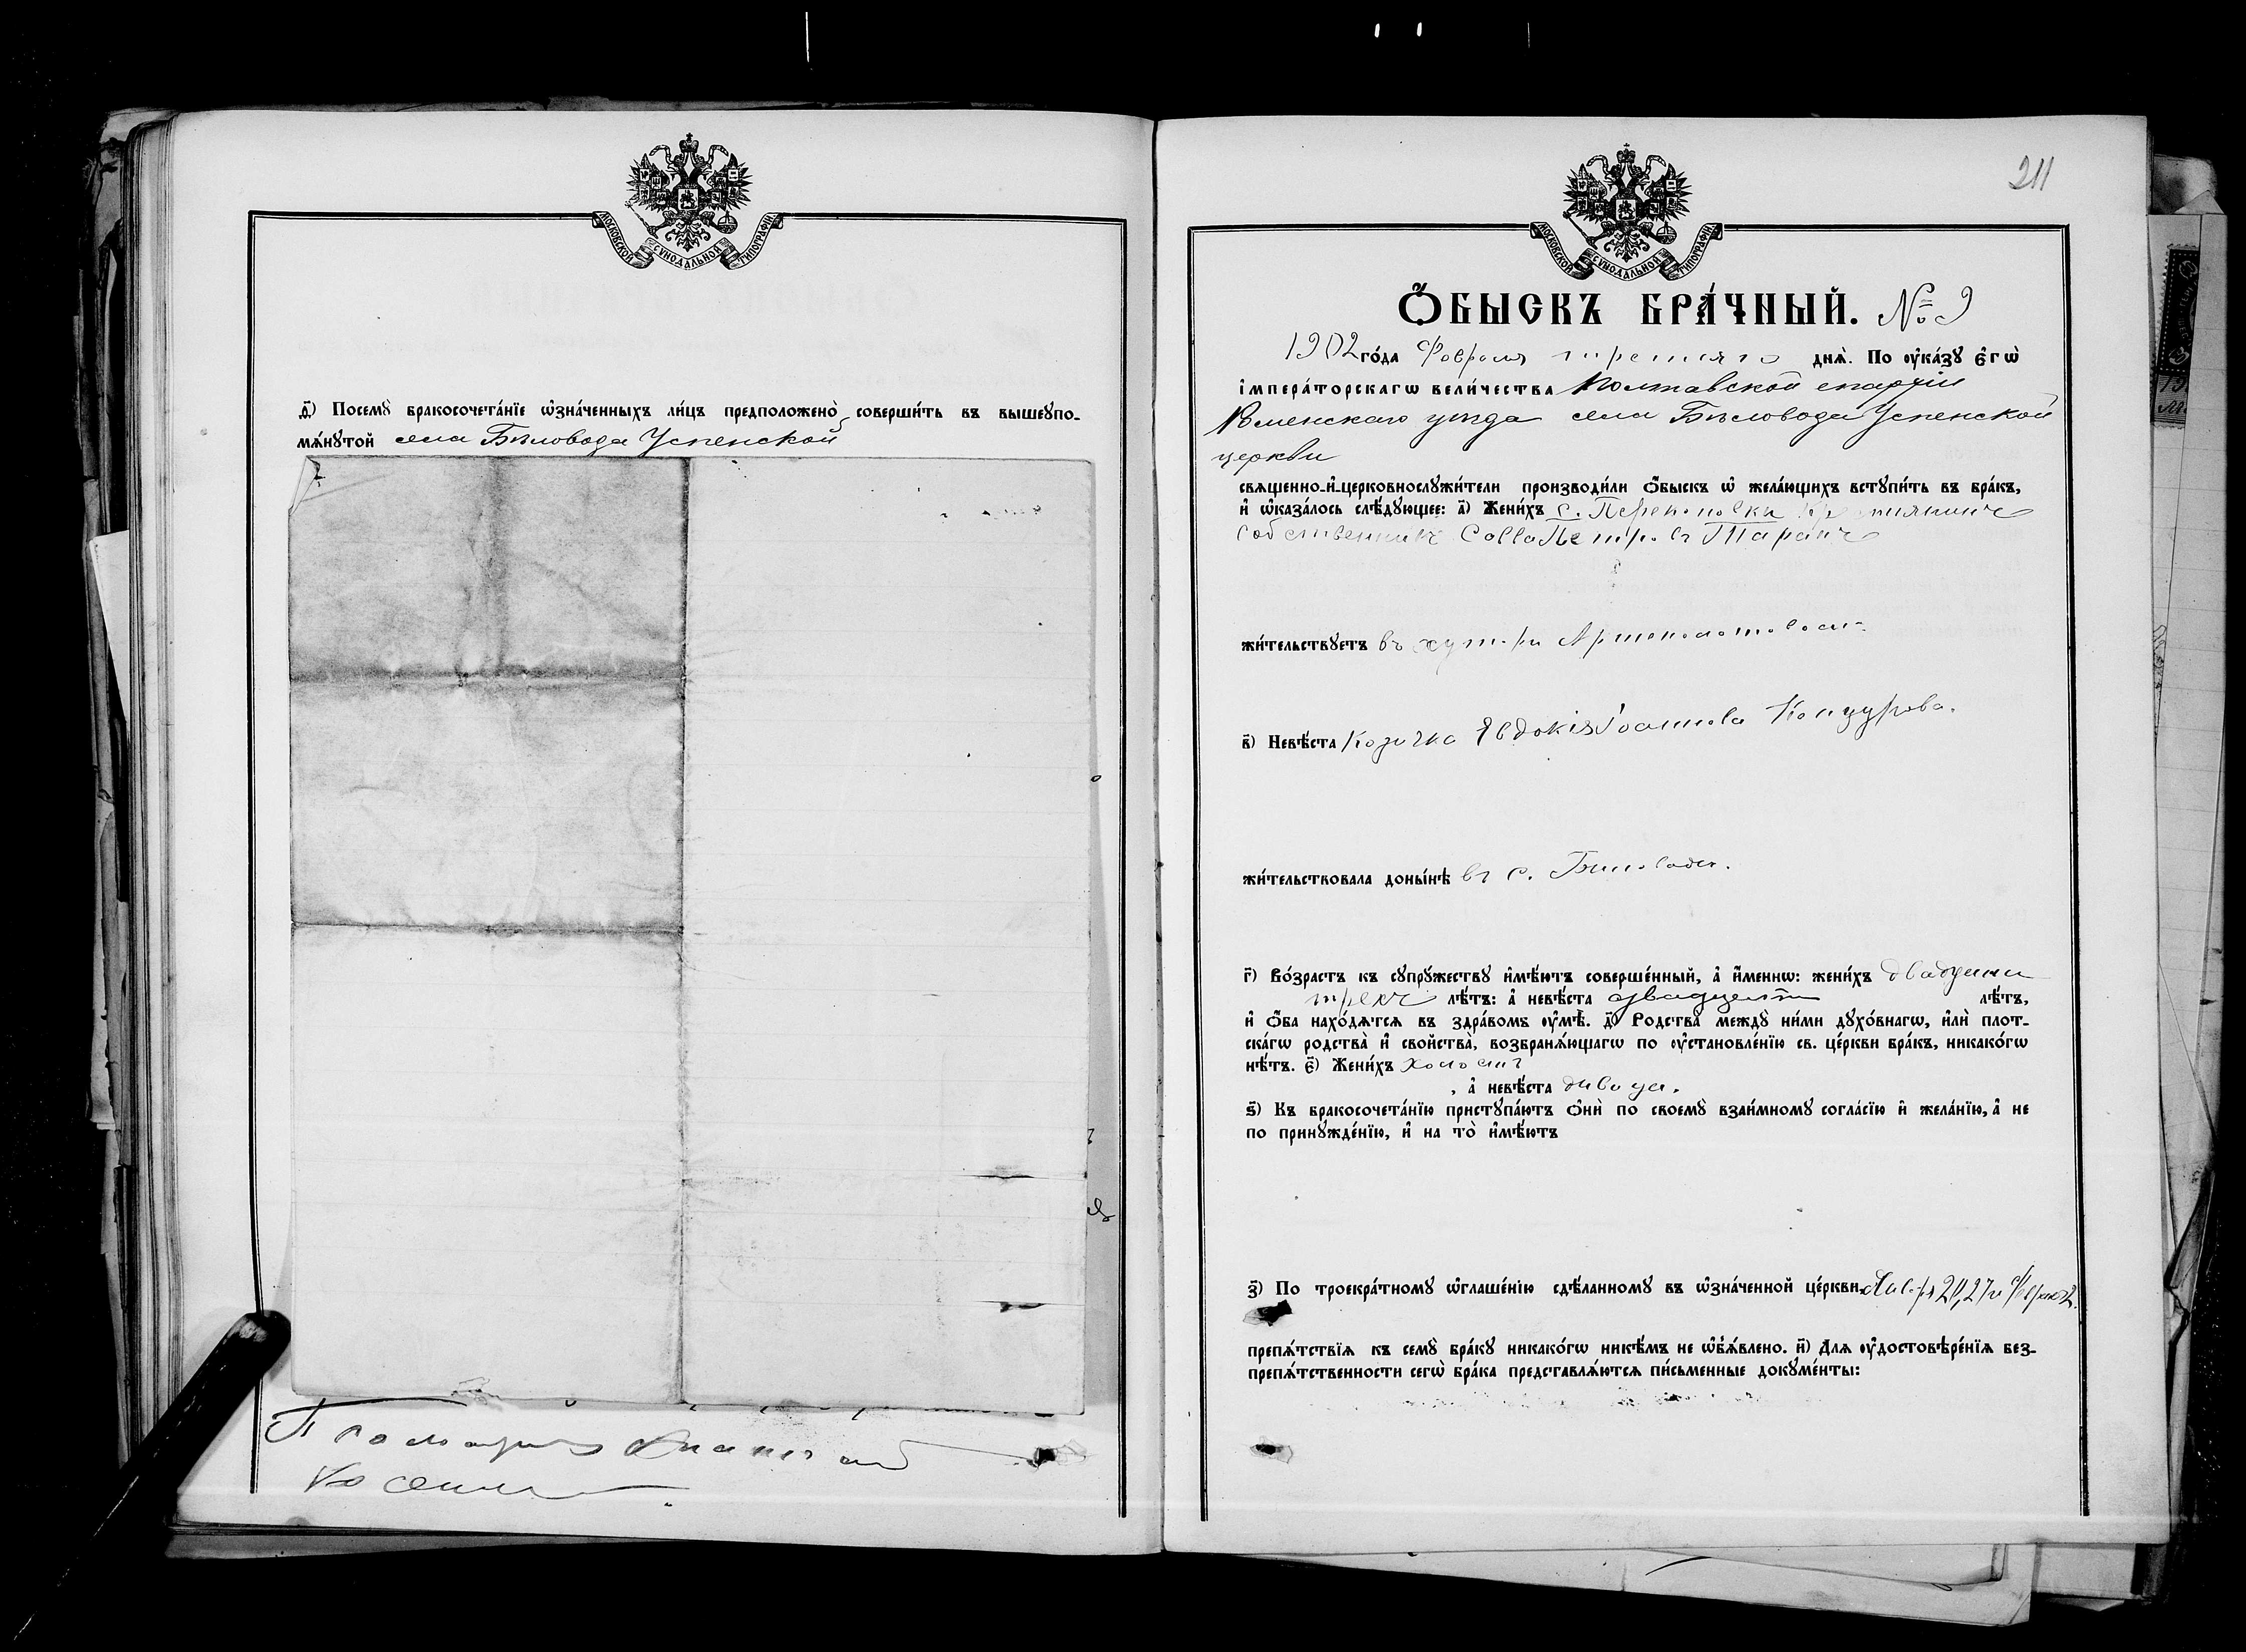 МОСКОВСКОЙ СѴНОДАЛЬНОЙ ТИПОГРАФІИ
д҃) Посемꙋ̀ бракосочета́нїе ѡ҆зна́ченныхъ ли́цъ предположено̀ соверши́ть въ вышеꙋпо-
мѧ́нꙋтой села Бѣловода Успенской
211
МОСКОВСКОЙ СѴНОДАЛЬНОЙ ТИПОГРАФІИ
Ѻ҆БЫСКЪ БРА́ЧНЫЙ. № 9
1902 го́да Февраля третьяго днѧ̀. По ᲂу҆ка́зꙋ є҆гѡ̀
і҆мпера́торскагѡ вели́чества Полтавской епархіи
Роменскаго уѣзда села Бѣловода Успенской
церкви
свѧщенно-и҆-церковнослꙋжи́тели производи́ли ѻ҆́быскъ ѡ҆ жела́ющихъ встꙋпи́ть въ бра́къ,
и҆ ѡ҆каза́лось слѣ́дꙋющее: а҃) Жени́хъ с. Перекоповки
собственникъ Савва Петровъ Таранъ
жи́тельствꙋетъ въ хуторѣ
в҃) Невѣ́ста Козачка Евдокія Іоаннова Коцурова.
жи́тельствовала доны́нѣ въ с. Бѣловодѣ.
г҃) Во́зрастъ къ сꙋпрꙋ́жествꙋ и҆мѣ́ютъ соверше́нный, а҆ и҆́меннѡ: жени́хъ двадцати
трехъ лѣ́тъ: а҆ невѣ́ста двадцати лѣ́тъ,
и҆ ѻ҆́ба нахо́дѧтсѧ въ здра́вомъ ᲂу҆мѣ̀. д҃) Родства̀ междꙋ̀ ни́ми дꙋхо́внагѡ, и҆лѝ плот-
ска́гѡ родства̀ и҆ сво́йства̀, возбранѧ́ющагѡ по ᲂу҆становле́нїю св. це́ркви бра́къ, никако́гѡ
нѣ́тъ. є҃) Жени́хъ холостъ
, а҆ невѣ́ста дѣвица.
ѕ҃) Къ бракосочета́нїю пристꙋпа́ютъ ѻ҆нѝ по своемꙋ̀ взаи́мномꙋ согла́сїю и҆ жела́нїю, а҆ не
по принꙋжде́нїю, и҆ на то̀ и҆мѣ́ютъ
з҃) По троекра́тномꙋ ѡ҆глаше́нїю сдѣ́ланномꙋ въ ѡ҆зна́ченной це́ркви Января 20, 27 и Февраля 2.
препѧ́тствїѧ къ семꙋ̀ бра́кꙋ никако́гѡ никѣ́мъ не ѡ҆б̾ѧ́влено. и҃) Длѧ ᲂу҆достовѣре́нїѧ без-
препѧ́тственности сегѡ̀ бра́ка представлѧ́ютсѧ пи́сьменные докꙋме́нты: